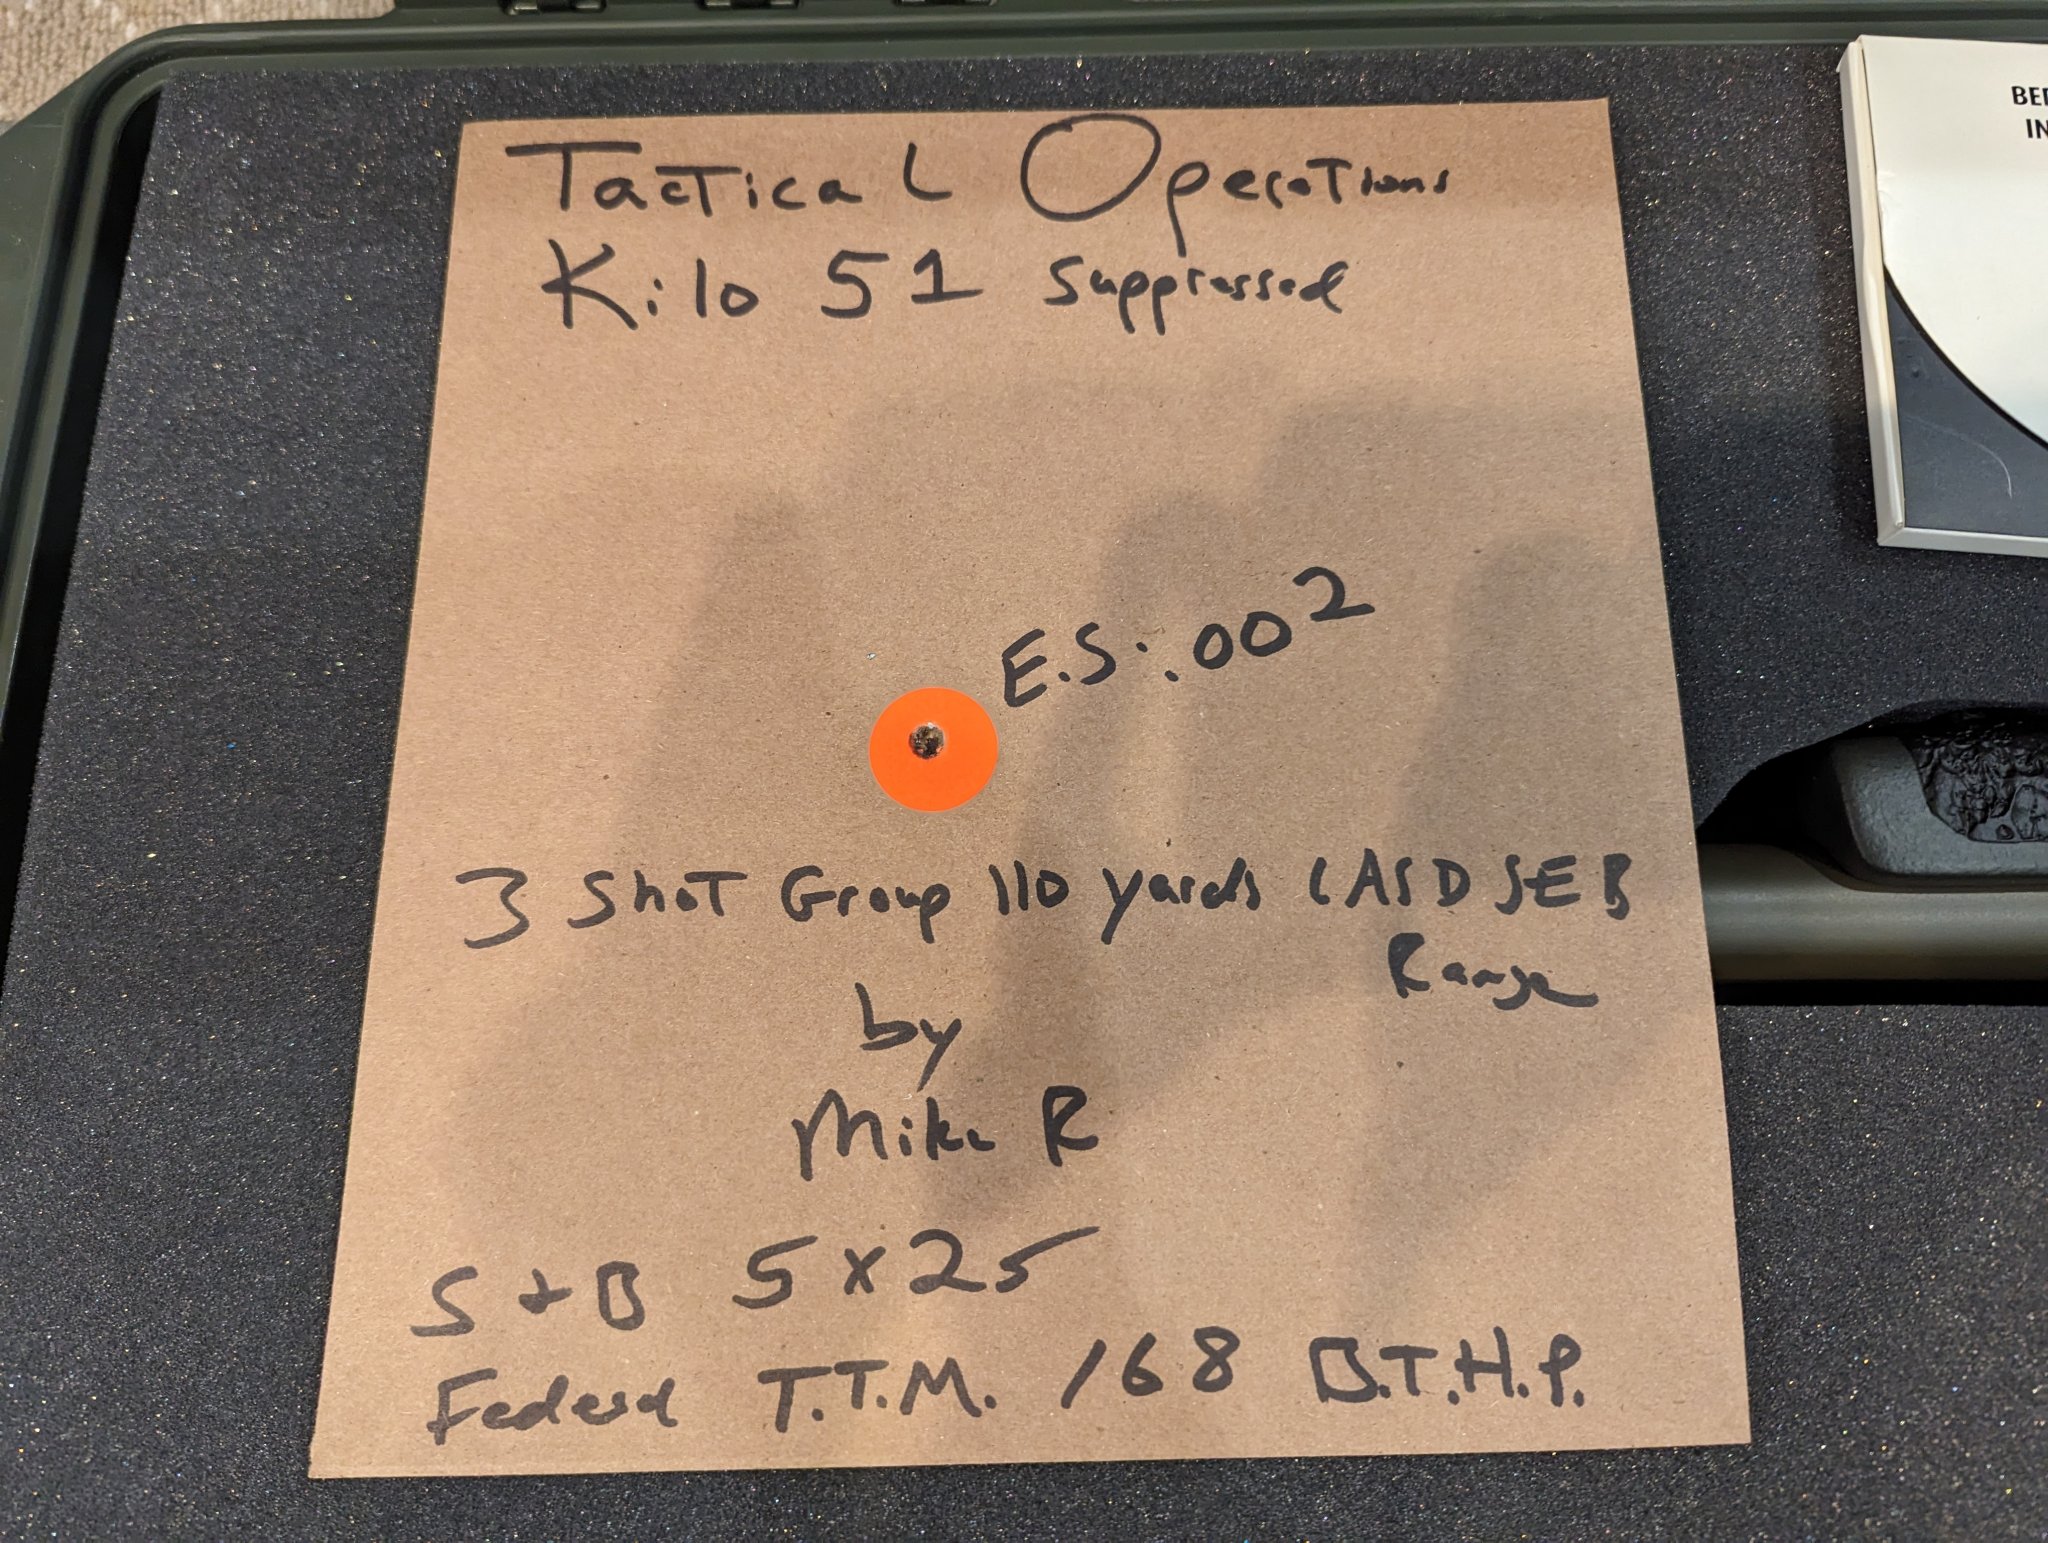 Tactical Operations
Kilo 51 Suppressed
E.S. .002
3 Shot Group 110 yards LASD SEB
Range
by
Mike R
S + B 5x25
Federal T.T.M. 168 B.T.H.P.
IN